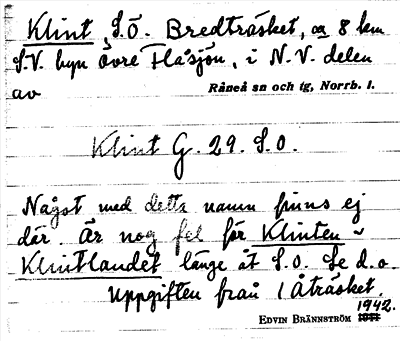 Klint, S.Ö. Bredträsket, ca 8 km
S.V. byn Övre Flåsjön, i N.V. delen
av Råneå sn och tg, Norrb. l.
Klint G. 29. S.O.
Något med detta namn finns ej
där. Är nog fel för Klinten ~
Klintlandet länge åt S.O. Se d.o.
Uppgiften från 1 Åträsket.
EDVIN BRÄNNSTRÖM 1942.